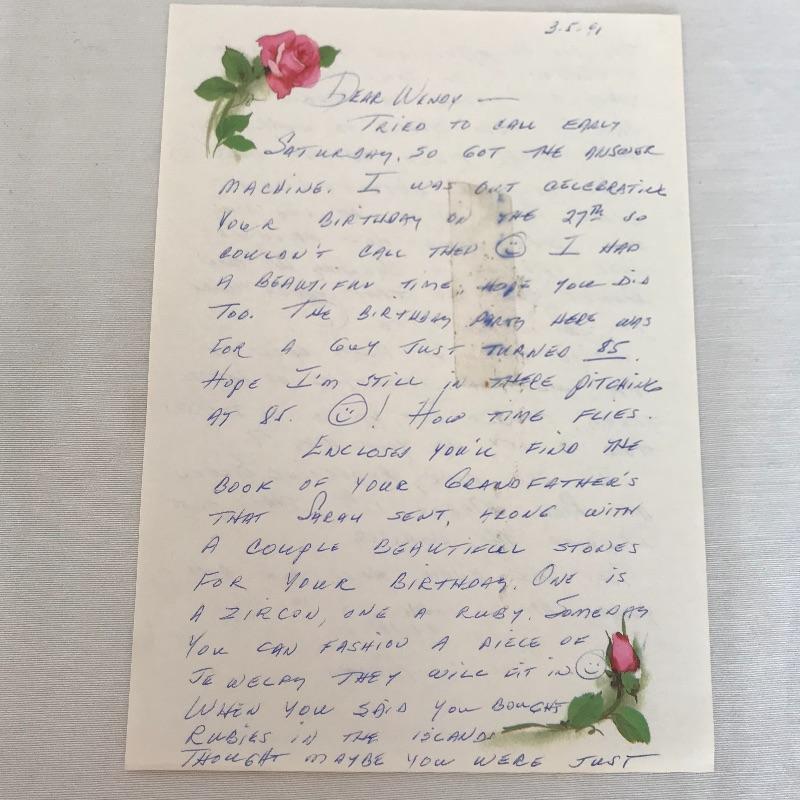 3-5-91
Dear Wendy —
Tried to call early
Saturday, so got the answer
machine. I was out celebrating
your birthday on the 27th so
couldn't call then ☺ I had
a beautiful time, hope you did
too. The birthday party here was
for a guy just turned 85.
Hope I'm still in there pitching
at 85. ☺! How time flies.
Enclosed you'll find the
book of your Grandfather's
that Sarah sent, along with
a couple beautiful stones
for your birthday. One is
a zircon, one a ruby. Someday
you can fashion a piece of
jewelry they will fit in ☺
When you said you bought
rubies in the islands
thought maybe you were just